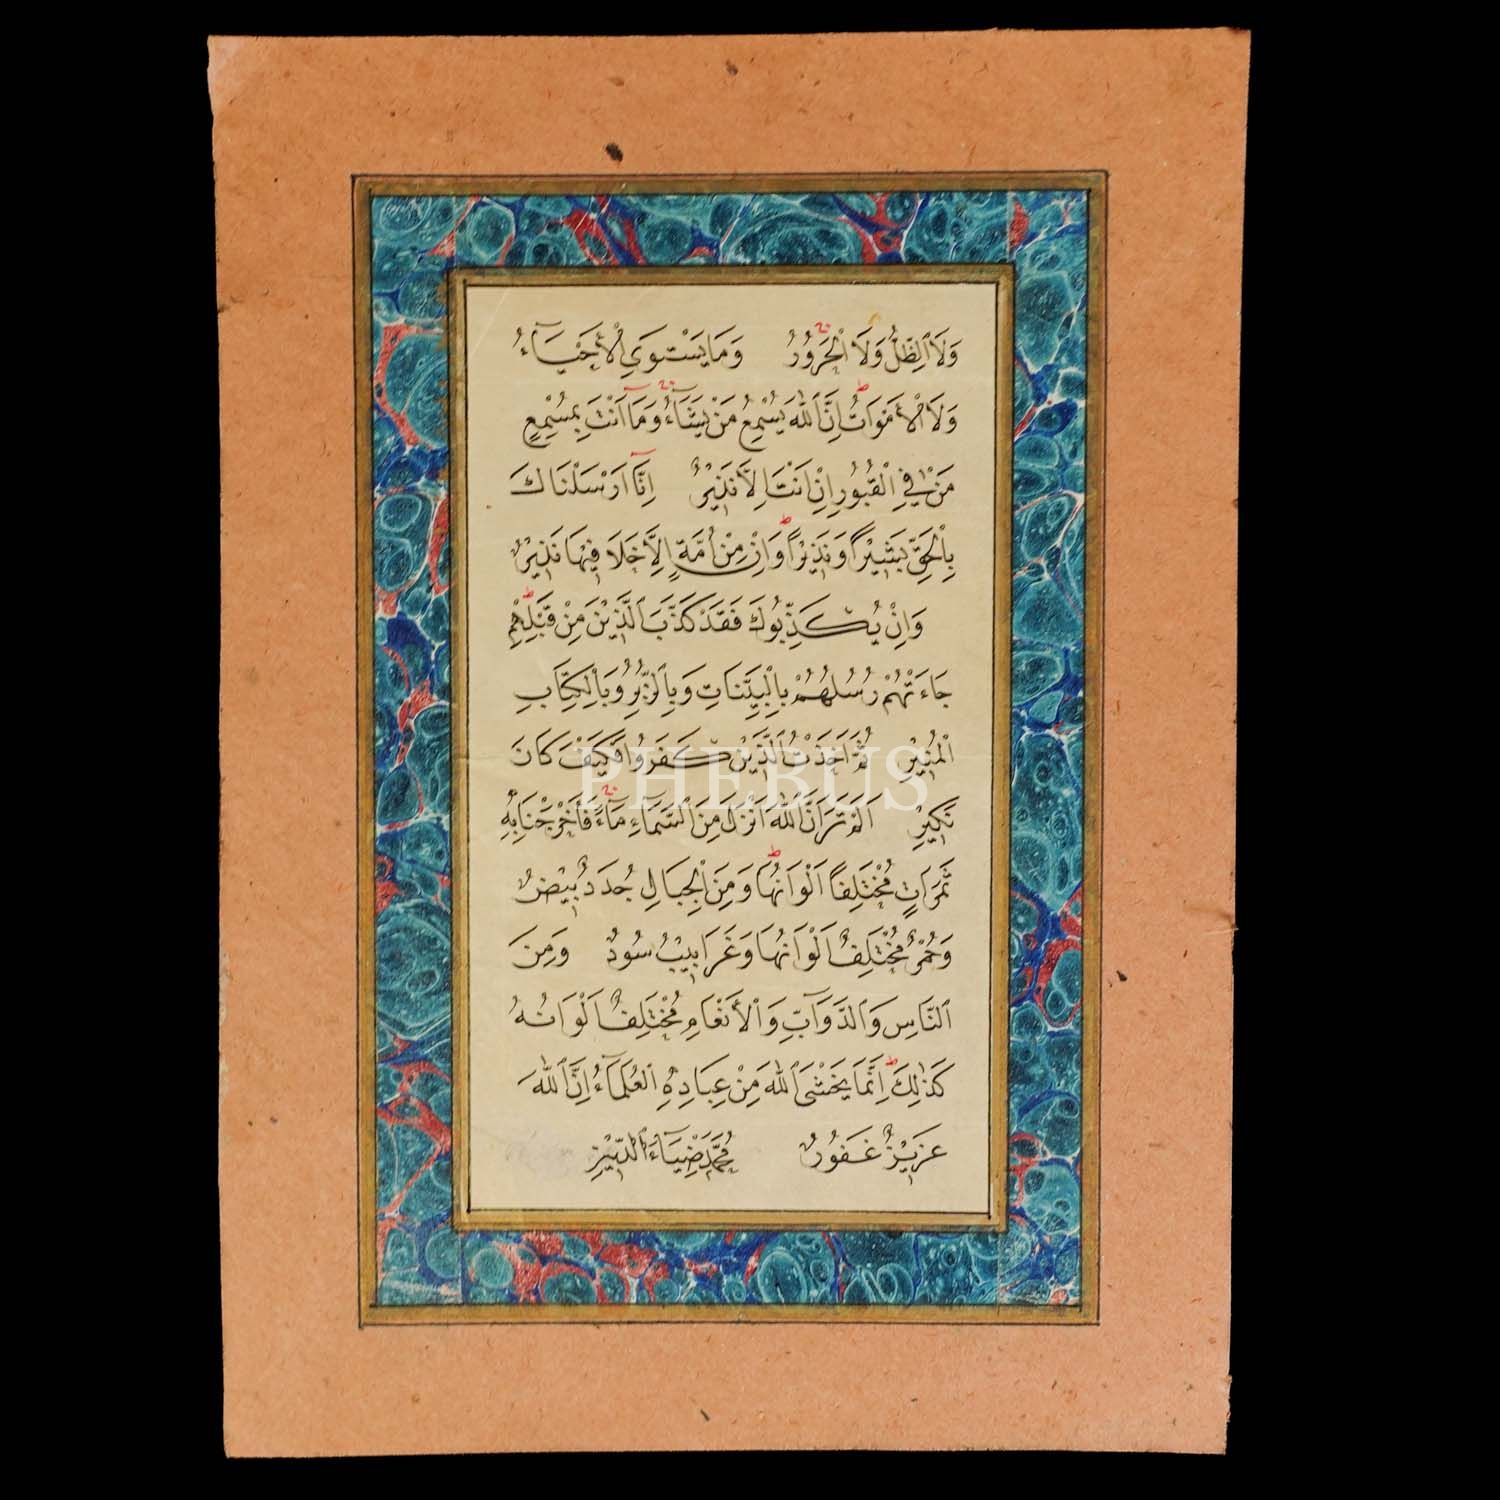 وَلَا الظِّلُّ وَلَا الْحَرُورُ وَمَا يَسْتَوِي الْأَحْيَآءُ
وَلَا الْأَمْوَاتُ اِنَّ اللّٰهَ يُسْمِعُ مَنْ يَشَآءُ وَمَا اَنْتَ بِمُسْمِعٍ
مَنْ فِي الْقُبُورِ اِنْ اَنْتَ اِلَّا نَذِيرٌ اِنَّا اَرْسَلْنَاكَ
بِالْحَقِّ بَشِيرًا وَنَذِيرًا وَاِنْ مِنْ اُمَّةٍ اِلَّا خَلَا فِيهَا نَذِيرٌ
وَاِنْ يُكَذِّبُوكَ فَقَدْ كَذَّبَ الَّذِينَ مِنْ قَبْلِهِمْ
جَاءَتْهُمْ رُسُلُهُمْ بِالْبَيِّنَاتِ وَبِالزُّبُرِ وَبِالْكِتَابِ
الْمُنِيرِ ثُمَّ اَخَذْتُ الَّذِينَ كَفَرُوا فَكَيْفَ كَانَ
PHEBUS
نَكِيرِ اَلَمْ تَرَ اَنَّ اللّٰهَ اَنْزَلَ مِنَ السَّمَآءِ مَآءً فَاَخْرَجْنَا بِهِ
ثَمَرَاتٍ مُخْتَلِفًا اَلْوَانُهَا وَمِنَ الْجِبَالِ جُدَدٌ بِيضٌ
وَحُمْرٌ مُخْتَلِفٌ اَلْوَانُهَا وَغَرَابِيبُ سُودٌ وَمِنَ
النَّاسِ وَالدَّوَآبِّ وَالْأَنْعَامِ مُخْتَلِفٌ اَلْوَانُهُ
كَذٰلِكَ اِنَّمَا يَخْشَى اللّٰهَ مِنْ عِبَادِهِ الْعُلَمَآءُ اِنَّ اللّٰهَ
عَزِيزٌ غَفُورٌ مُحَمَّد ضِيَآءَ الدِّين